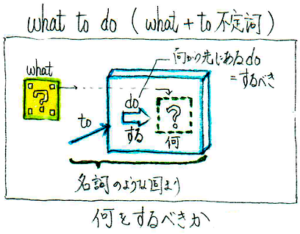 what to do (what + to 不定詞)
何かの先にあるdo
=するべき
what
?
do
?
to
する
何
名詞のような固まり
何をするべきか